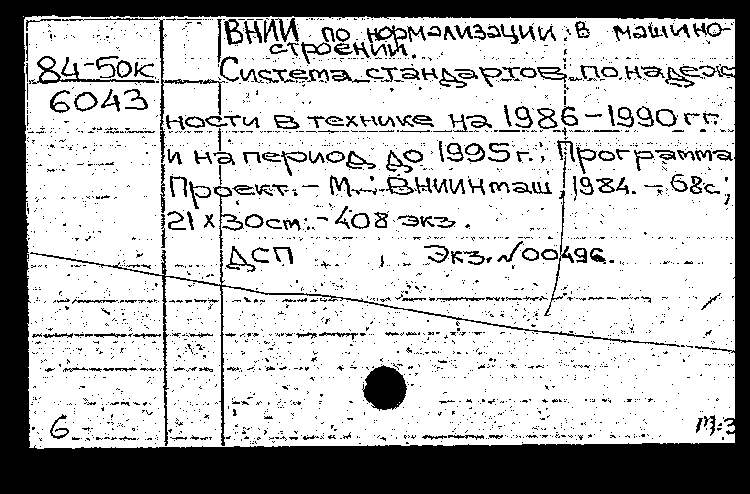 ВНИИ по нормализации в машино-
строении.
84-50к Система стандартов по надеж
6043
ности в технике на 1986-1990 гг.
и на период до 1995 г.: Программа
Проект. - М.: ВНИИНмаш, 1984. - 68с;
21 х 30см. - 408 экз.
ДСП Экз. №00496.
6